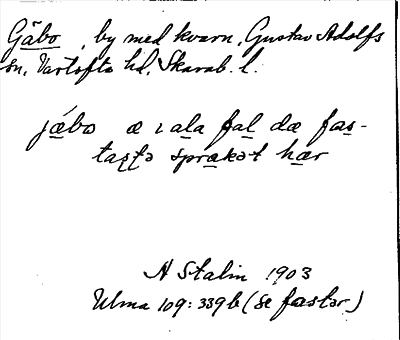 Gäbo, by med kvarn, Gustav Adolfs
sn, Vartofta hd, Skarab. l.
jǽbo æ ı ala fal dæ fas-
taʂtə språkət hær
A Stalin 1903
Ulma 109: 339 b (se fastər)